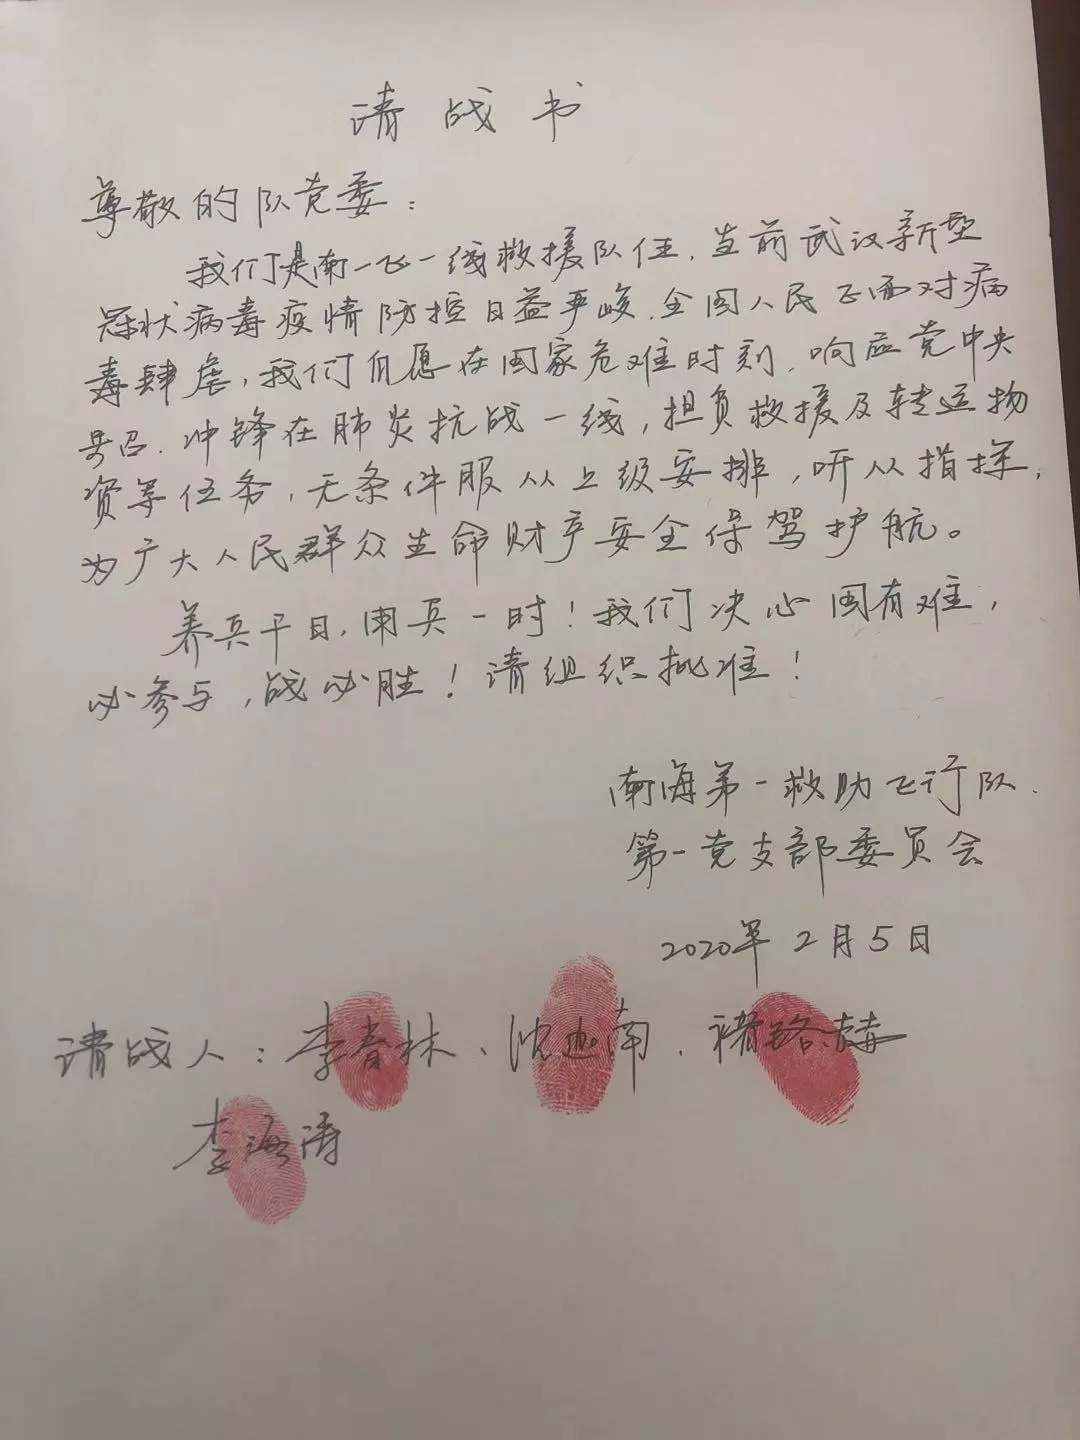 请战书
尊敬的队党委：
我们是南一飞一线救援队伍，当前武汉新型
冠状病毒疫情防控日益严峻，全国人民正面对病
毒肆虐，我们自愿在国家危难时刻，响应党中央
号召，冲锋在肺炎抗战一线，担负救援及转运物
资等任务，无条件服从上级安排，听从指挥，
为广大人民群众生命财产安全保驾护航。
养兵千日，用兵一时！我们决心国有难，
必参与，战必胜！请组织批准！
南海第一救助飞行队
第一党支部委员会
2020年2月5日
请战人：李春林、沈迦南、褚路
李海涛